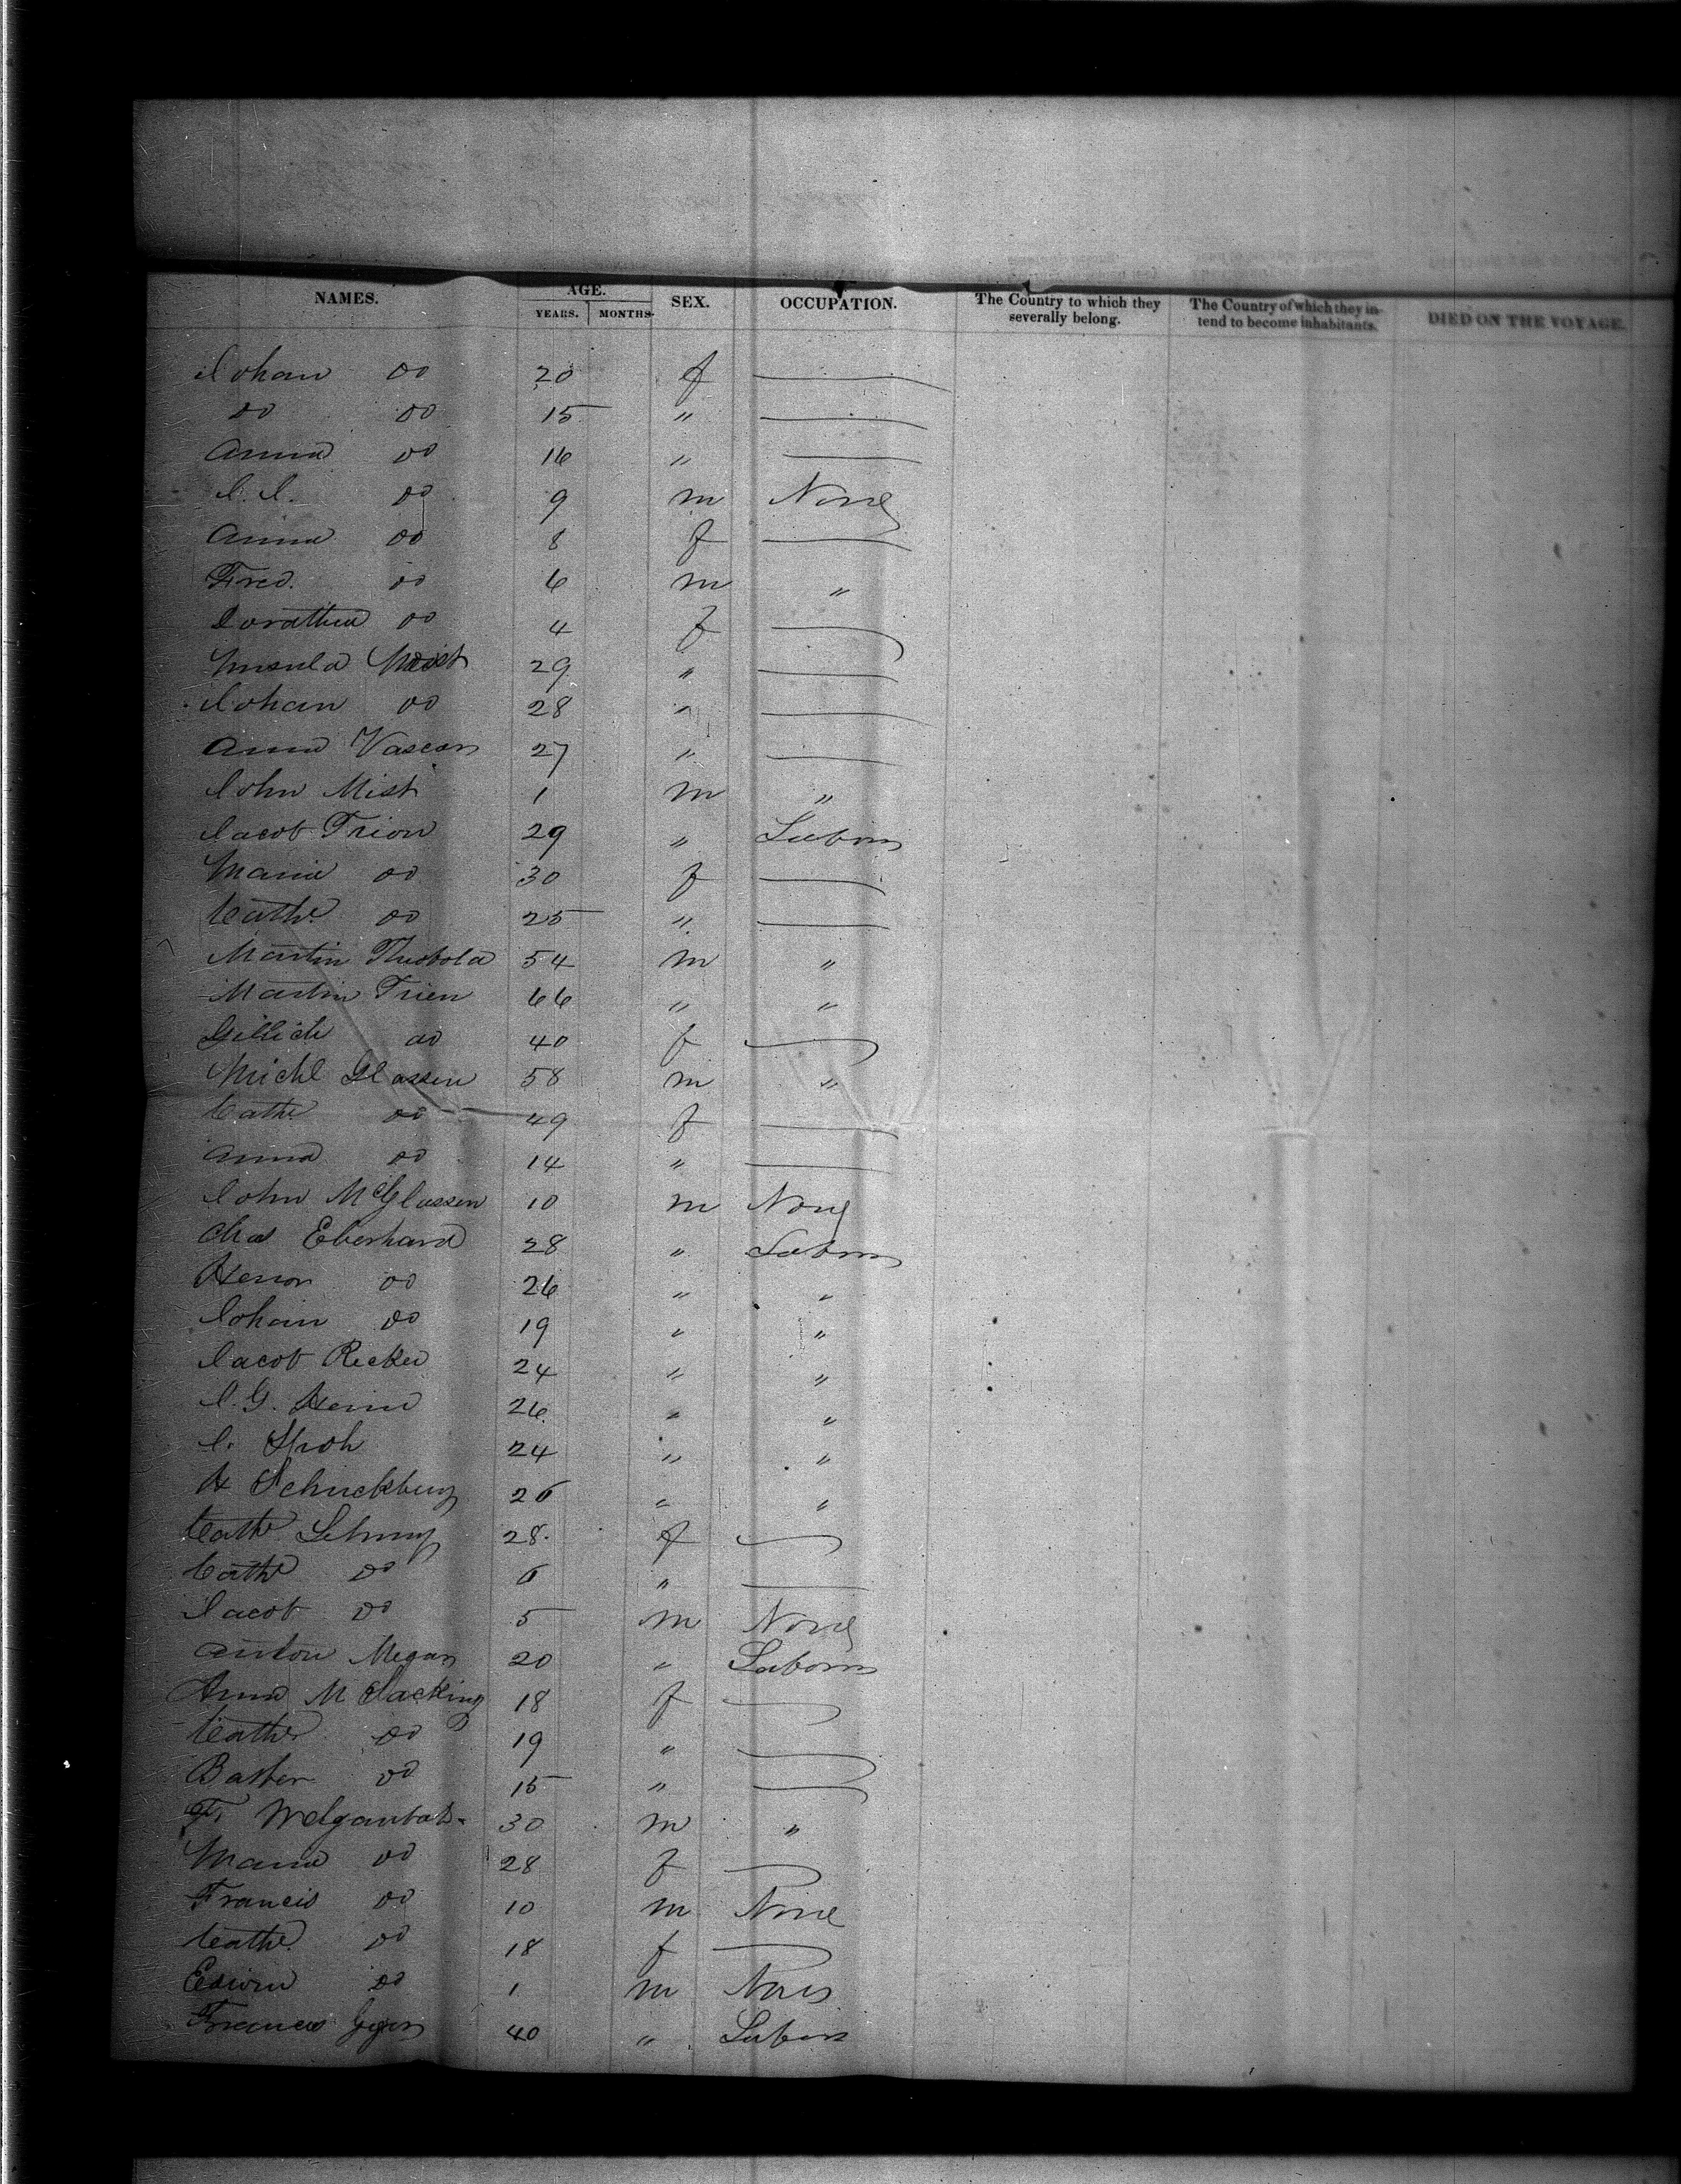 NAMES. AGE. YEARS. MONTHS. SEX. OCCUPATION. The Country to which they severally belong. The Country of which they intend to become inhabitants. DIED ON THE VOYAGE.
Johan do 20 f —
do do 15 " —
Anna do 16 " —
J. J. do 9 m None
Anna do 8 f —
Fred. do 6 m "
Dorathea do 4 f —
Ursula 29 " —
Johan do 28 " —
Anna 27 " —
John Mist 1 m "
Jacob Trion 29 " Laborer
Maria do 30 f —
Cathe do 25 " —
Martin Theobold 54 m "
Martin Trien 66 " "
do 40 f —
Michl Glassen 58 m "
Cathe do 49 f —
Anna do 14 " —
John McGlassen 10 m None
Chas Eberhard 28 " Laborer
do 26 " "
Johan do 19 " "
Jacob Recker 24 " "
J. G. 26 " "
J. Stroh 24 " "
H Schuckburg 26 " "
Cathe 28 f —
Cathe do 6 " —
Jacob do 5 m None
Anton Megan 20 " Laborer
Anna M 18 f —
Cathe do 19 " —
do 15 " —
F. 30 m "
Maria do 28 f —
Francis do 10 m None
Cathe do 18 f —
Edwin do 1 m None
Francis 40 " Laborer